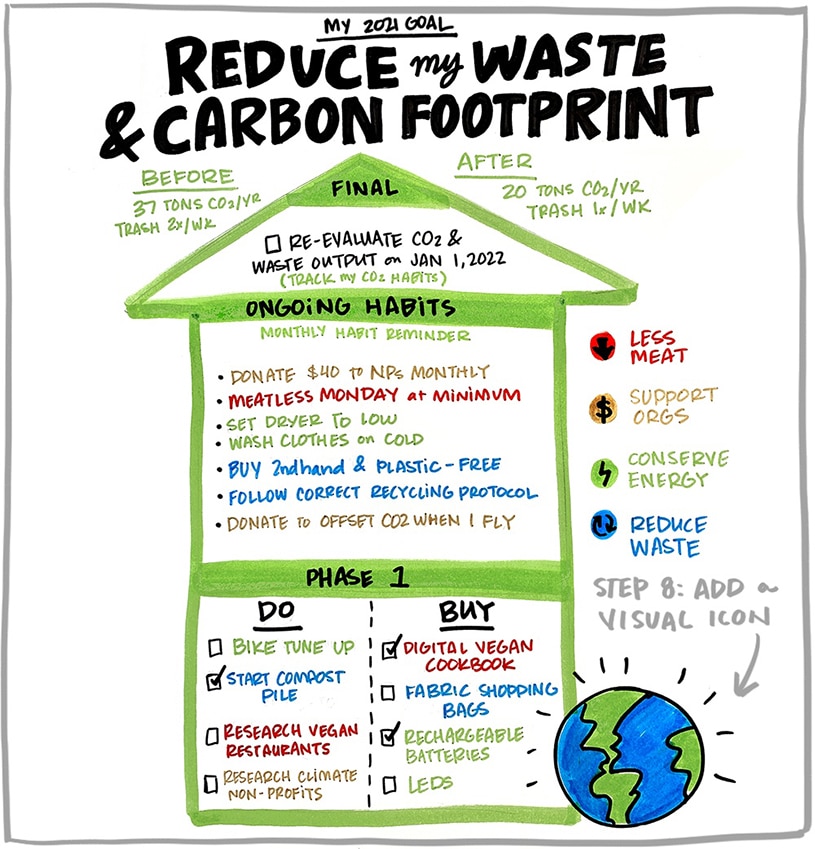 MY 2021 GOAL
REDUCE my WASTE
& CARBON FOOTPRINT
BEFORE
37 TONS CO2/YR
TRASH 2x/WK
AFTER
20 TONS CO2/YR
TRASH 1x/WK
FINAL
RE-EVALUATE CO2 &
WASTE OUTPUT on JAN 1, 2022
(TRACK my CO2 HABITS)
ONGOING HABITS
MONTHLY HABIT REMINDER
• DONATE $40 to NPs MONTHLY
• MEATLESS MONDAY at MINIMUM
• SET DRYER TO LOW
• WASH CLOTHES on COLD
• BUY 2ndhand & PLASTIC-FREE
• FOLLOW CORRECT RECYCLING PROTOCOL
• DONATE to OFFSET CO2 WHEN I FLY
LESS
MEAT
$
SUPPORT
ORGS
CONSERVE
ENERGY
REDUCE
WASTE
PHASE 1
DO
BIKE TUNE UP
START COMPOST
PILE
RESEARCH VEGAN
RESTAURANTS
RESEARCH CLIMATE
NON-PROFITS
BUY
DIGITAL VEGAN
COOKBOOK
FABRIC SHOPPING
BAGS
RECHARGEABLE
BATTERIES
LEDS
STEP 8: ADD a
VISUAL ICON